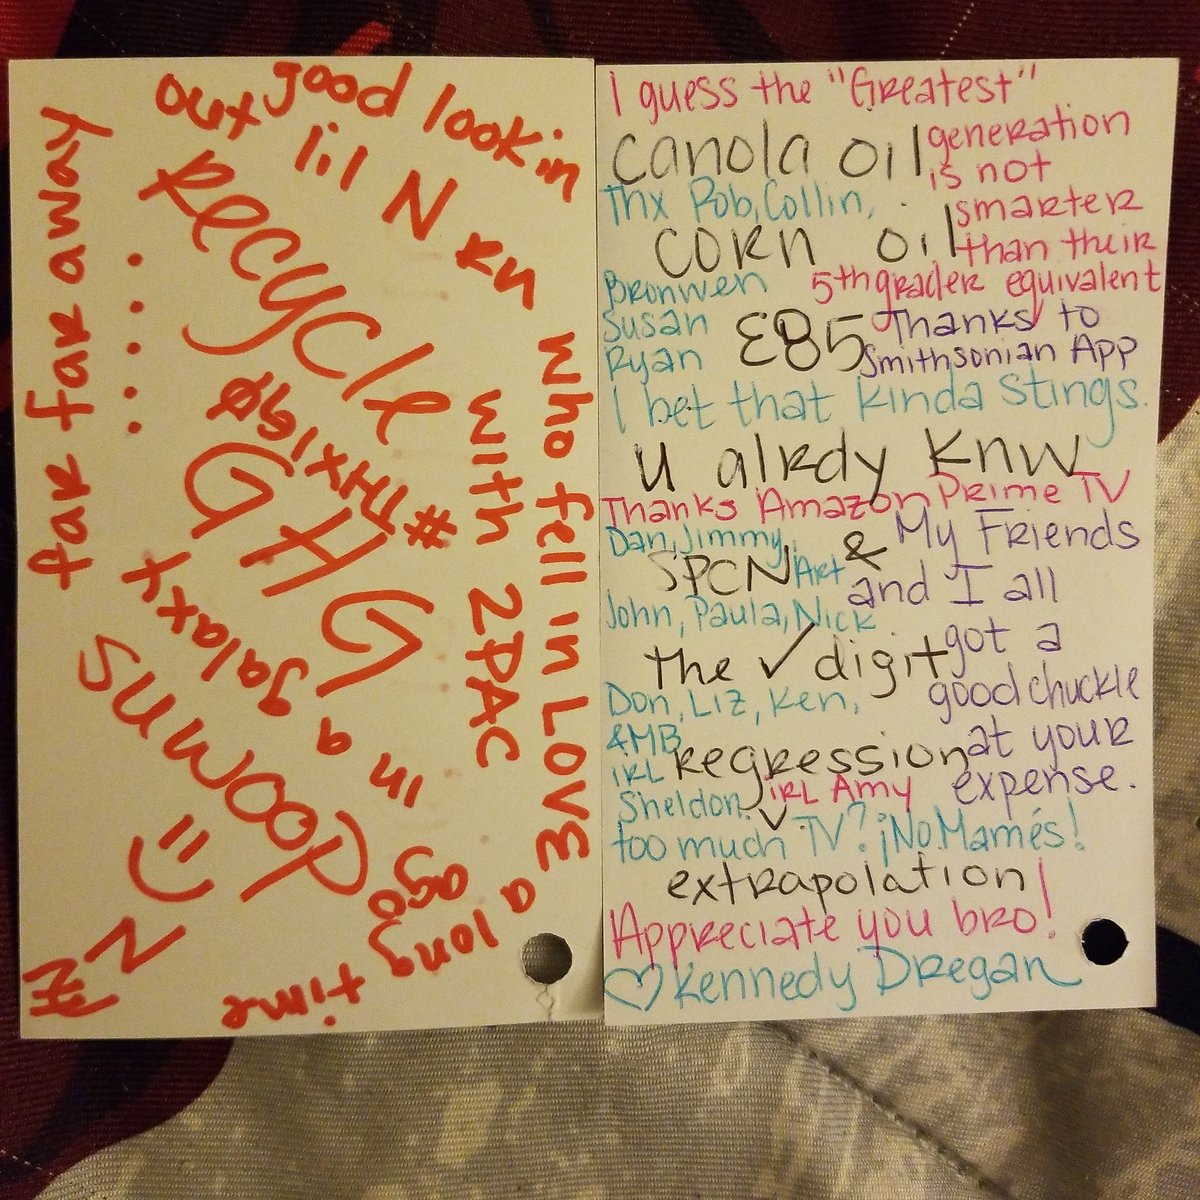 good lookin
out lil N RN who fell in LOVE
with 2PAC
a long
time
ago
in a galaxy
far far away
......
Recycle
#THXlgø
GHG
Downs
=)
N
I guess the "Greatest"
generation
is not
smarter
than their
5th grader equivalent
canola oil
Thx Rob, Collin,
corn oil
Bronwen
Susan
Ryan
E85
Thanks to
Smithsonian App
I bet that kinda stings.
u alrdy knw
Thanks Amazon Prime TV
Dan, Jimmy,
Art
& My Friends
and I all
got a
good chuckle
at your
expense.
SPCN
John, Paula, Nick
the ✓ digit
Don, Liz, Ken,
&MB
IRL
Sheldon.
regression
IRL Amy
too much TV? ¡No Mamés!
extrapolation
Appreciate you bro!
♡ Kennedy Dregan